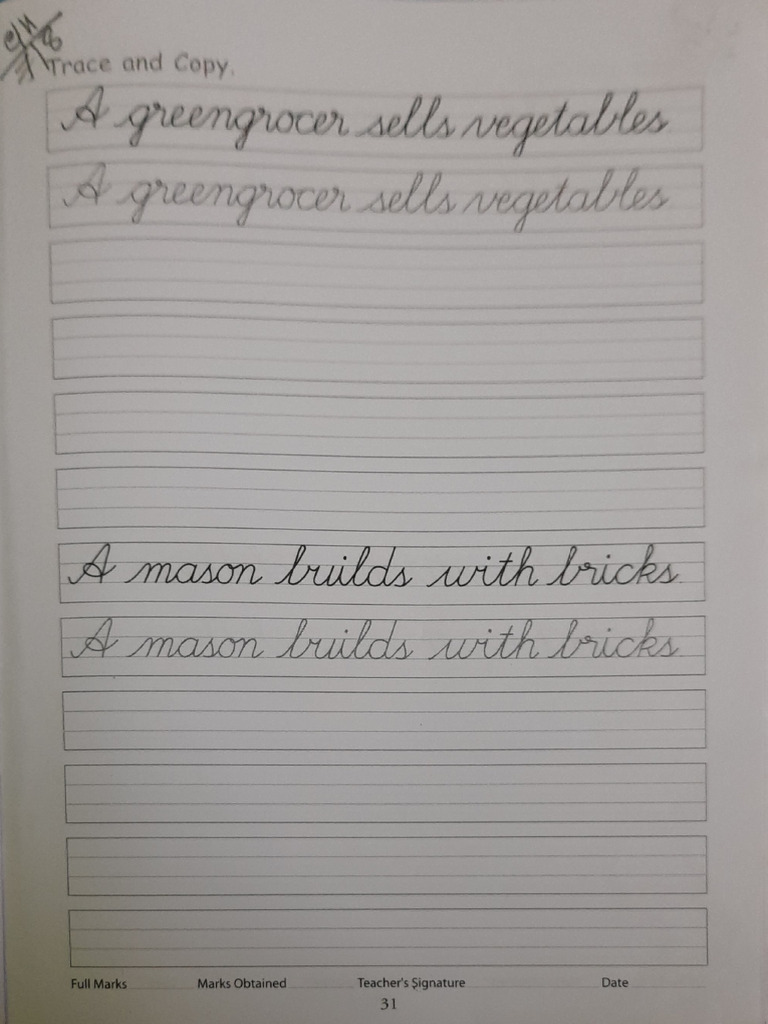 Trace and Copy.
A greengrocer sells vegetables
A greengrocer sells vegetables
A mason builds with bricks
A mason builds with bricks
Full Marks Marks Obtained Teacher's Signature Date
31